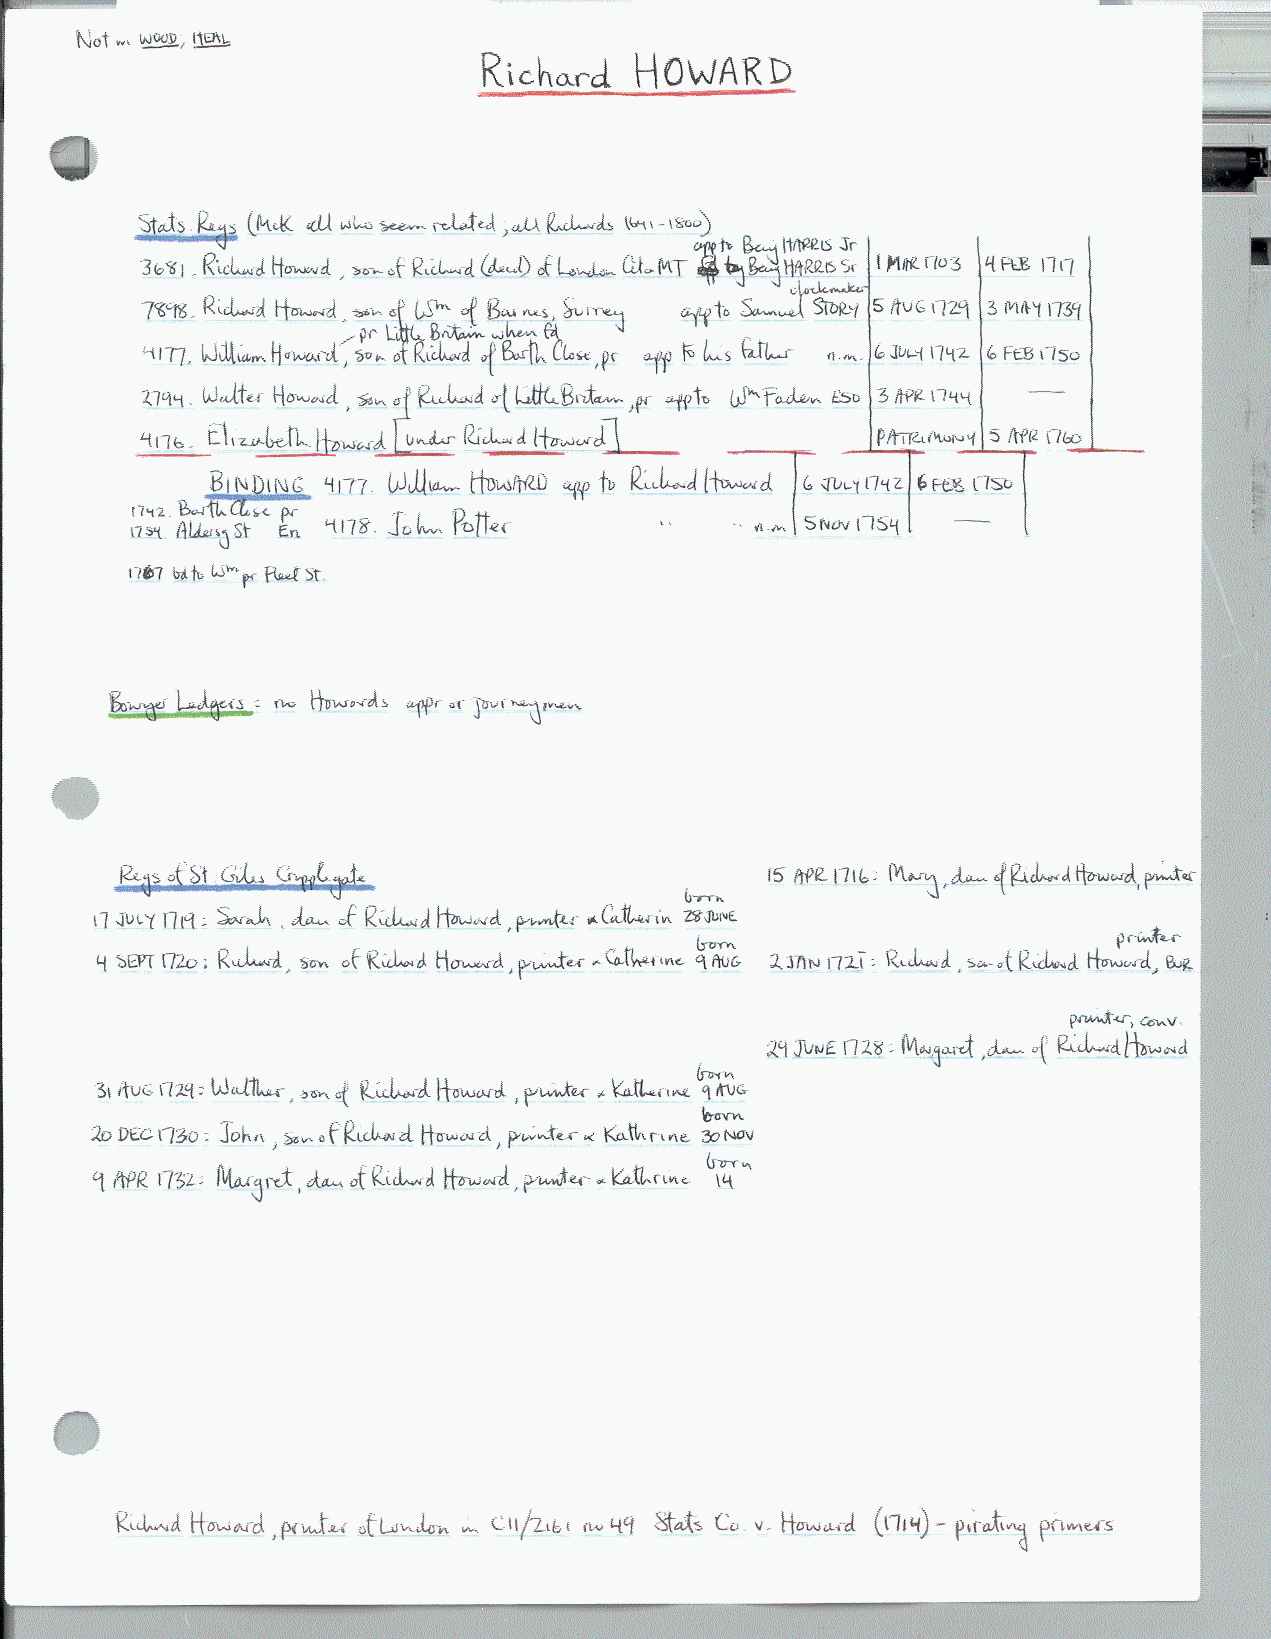 Not in WOOD, HEAL
Richard HOWARD
Stats. Regs (McK all who seem related, all Richards 1641-1800)
app to Benj HARRIS Jr
3681. Richard Howard, son of Richard (decd) of London Cit & MT by Benj HARRIS Sr 1 MAR 1703 4 FEB 1717
clockmaker
7898. Richard Howard, son of Wm of Barnes, Surrey app to Samuel STORY 5 AUG 1729 3 MAY 1739
pr Little Britain when fd
4177. William Howard, son of Richard of Barth Close, pr app to his father n.m. 6 JULY 1742 6 FEB 1750
2794. Walter Howard, son of Richard of Little Britain, pr app to Wm Faden ESO 3 APR 1744 —
4176. Elizabeth Howard [under Richard Howard] PATRIMONY 5 APR 1760
BINDING 4177. William HOWARD app to Richard Howard 6 JULY 1742 6 FEB 1750
1742. Barth Close pr
1754. Aldersg St En 4178. John Potter " " n.m 5 NOV 1754 —
1767 bd to Wm pr Fleet St.
Bowyer Ledgers: no Howards appr or journeymen
Regs of St. Giles Cripplegate
15 APR 1716: Mary, dau of Richard Howard, printer
born
17 JULY 1719: Sarah, dau of Richard Howard, printer & Catherin 28 JUNE
born
printer
4 SEPT 1720: Richard, son of Richard Howard, printer & Catherine 9 AUG 2 JAN 1721: Richard, son of Richard Howard, BUR
printer, conv.
29 JUNE 1728: Margaret, dau of Richard Howard
born
31 AUG 1729: Walther, son of Richard Howard, printer & Katherine 9 AUG
born
20 DEC 1730: John, son of Richard Howard, printer & Kathrine 30 NOV
born
9 APR 1732: Margret, dau of Richard Howard, printer & Kathrine 14
Richard Howard, printer of London in C11/2161 no 49 Stats Co. v. Howard (1714) - pirating primers